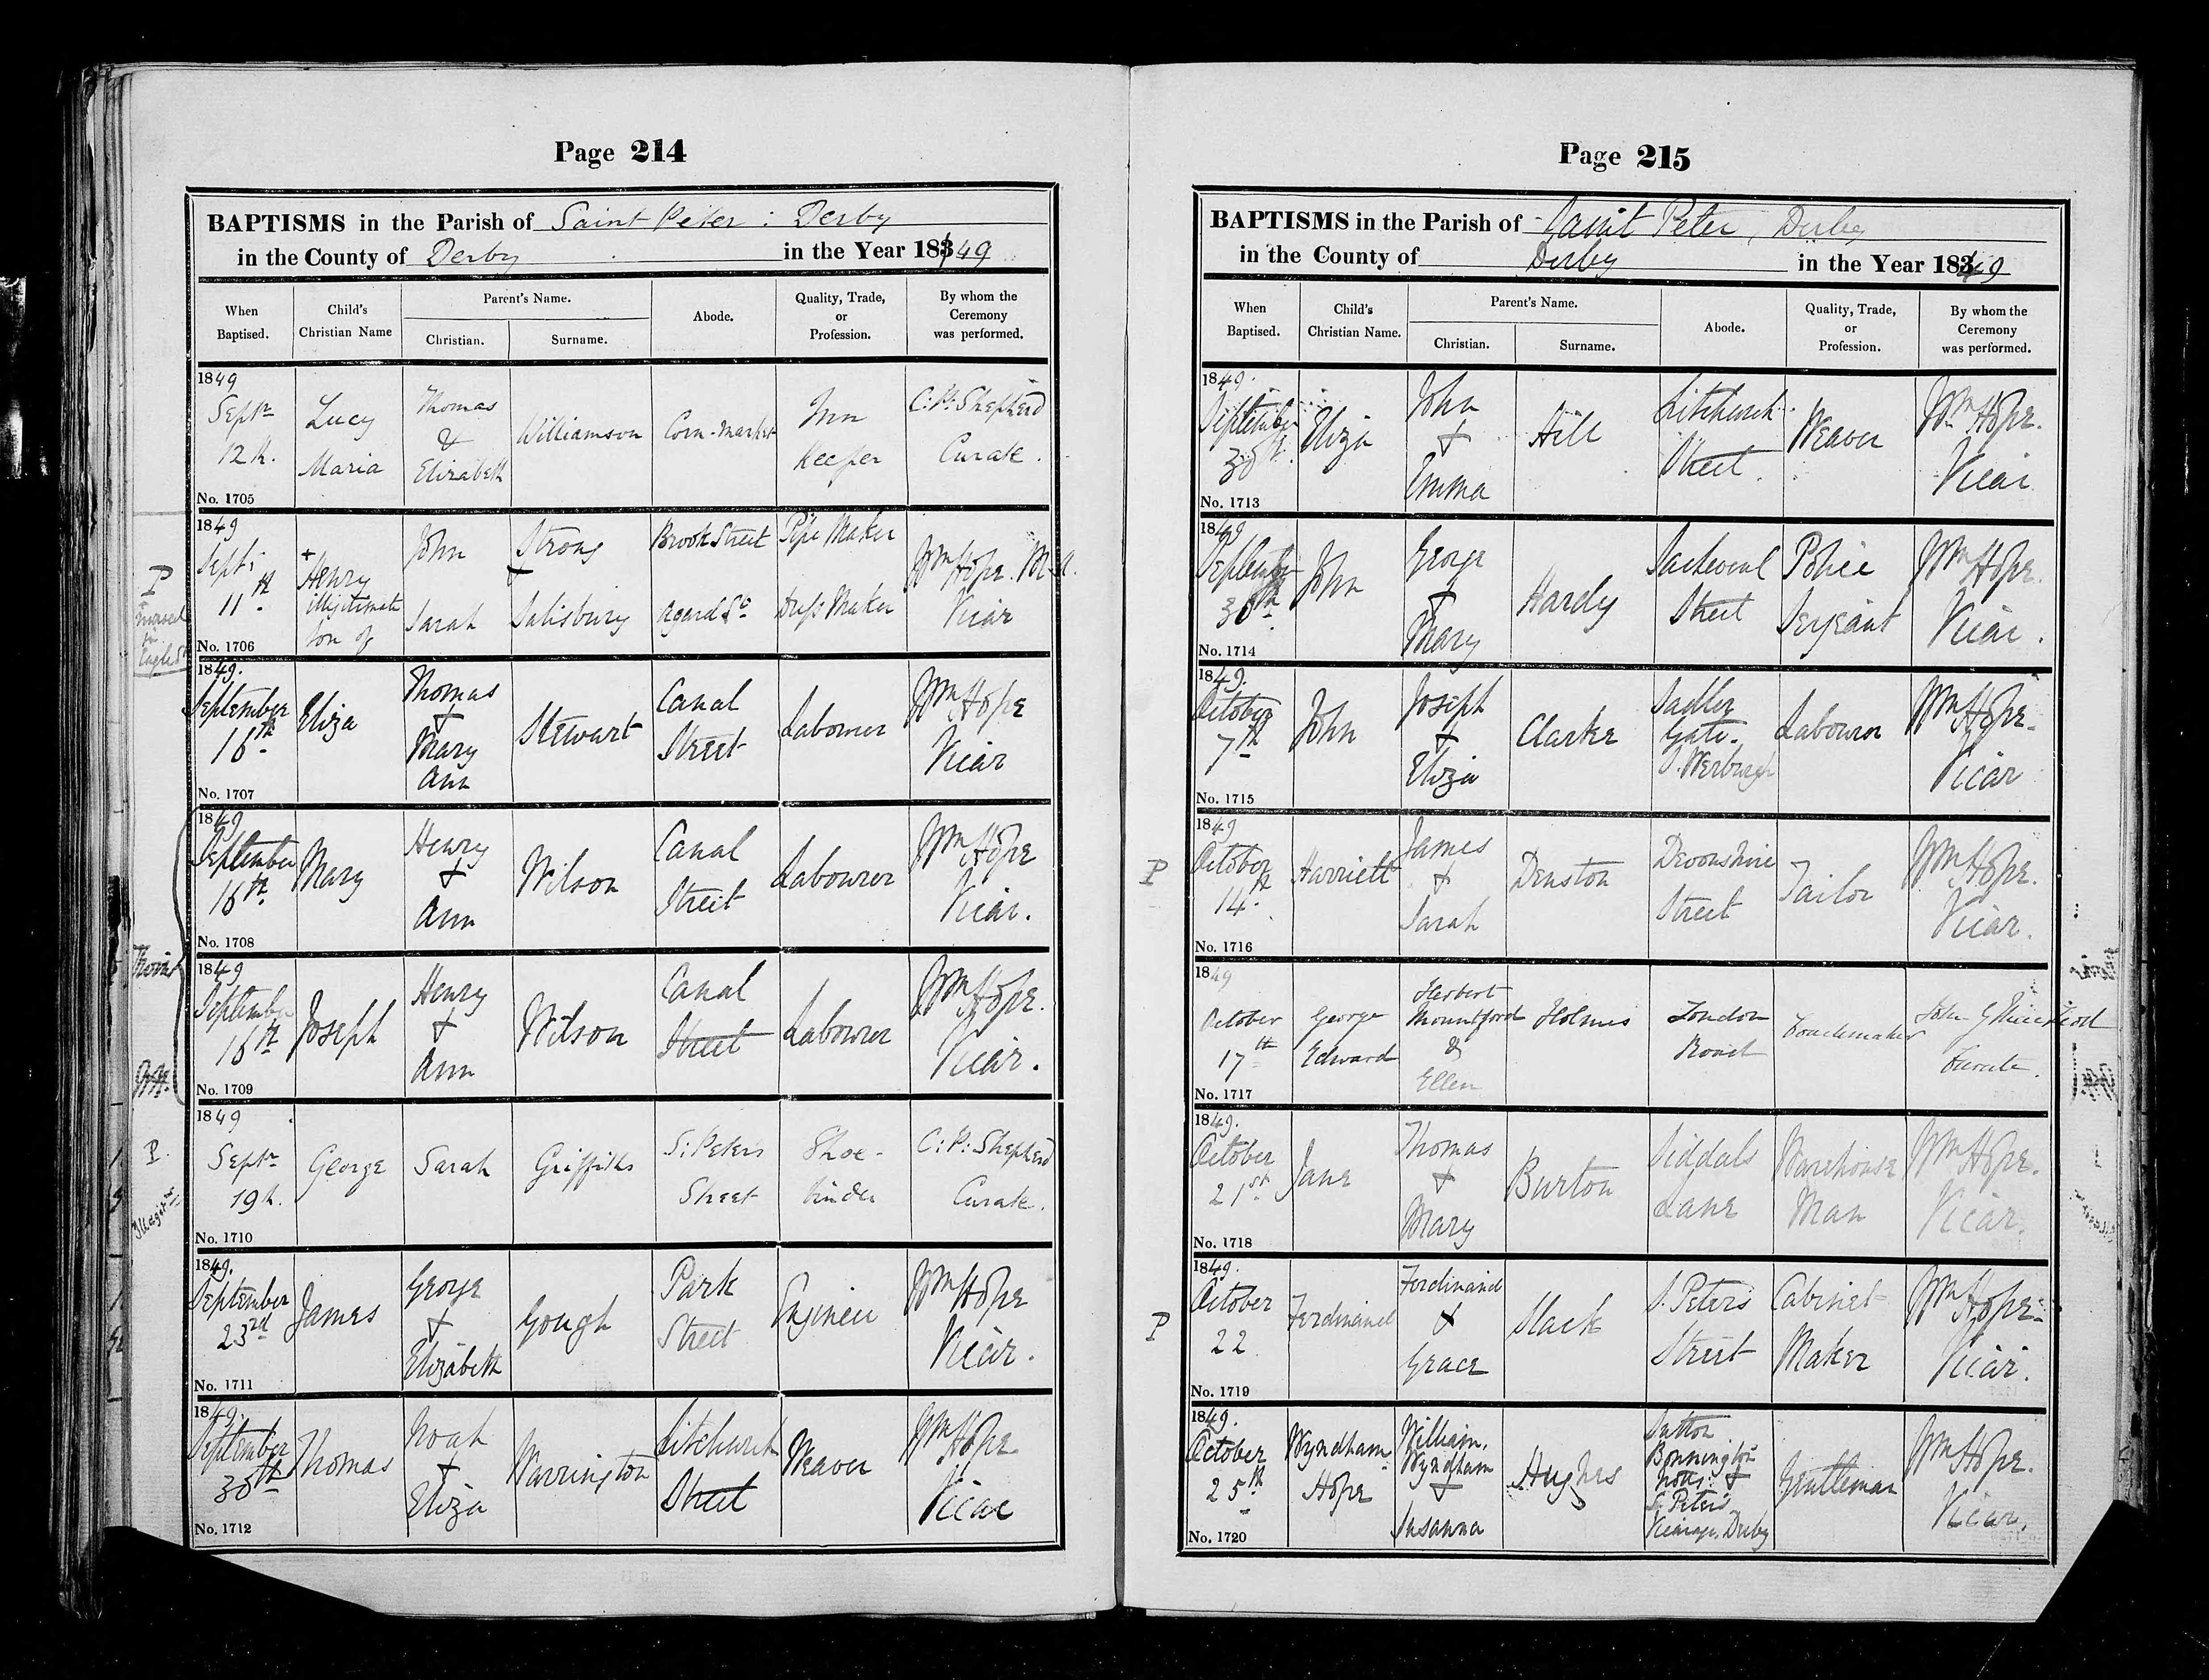 Page 214
BAPTISMS in the Parish of Saint Peter : Derby
in the County of Derby in the Year 1849
When Baptised.
Child's Christian Name
Parent's Name.
Christian.
Surname.
Abode.
Quality, Trade, or Profession.
By whom the Ceremony was performed.
1849
Septr 12th.
Lucy Maria
Thomas & Elizabeth
Williamson
Corn-Market
Inn Keeper
C: P: Shepherd Curate.
No. 1705
P
1849
Sept: 11th
+ Henry illegitimate son of
John
Sarah
Strong
+
Salisbury
Brook Street
Agard St
Pipe Maker
Dress Maker
Wm Hope. M.A. Vicar
No. 1706
1849.
September 16th
Eliza
Thomas + Mary Ann
Stewart
Canal Street
Labourer
Wm Hope Vicar
No. 1707
1849
September 16th
Mary
Henry + Ann
Wilson
Canal Street
Labourer
Wm Hope Vicar.
No. 1708
1849
September 16th
Joseph
Henry + Ann
Wilson
Canal Street
Labourer
Wm Hope. Vicar.
No. 1709
P.
1849
Septr 19th.
George
Sarah
Griffiths
S: Peters Street
Shoe-binder
C: P: Shepherd Curate.
No. 1710
1849.
September 23rd
James
George + Elizabeth
Gough
Park Street
Engineer
Wm Hope Vicar.
No. 1711
1849.
September 30th
Thomas
Noah + Eliza
Warrington
Litchurch Street
Weaver
Wm Hope. Vicar
No. 1712
Page 215
BAPTISMS in the Parish of Saint Peter, Derby
in the County of Derby in the Year 1849
When Baptised.
Child's Christian Name.
Parent's Name.
Christian.
Surname.
Abode.
Quality, Trade, or Profession.
By whom the Ceremony was performed.
1849.
September 30th.
Eliza
John + Emma
Hill
Litchurch Street.
Weaver
Wm Hope. Vicar
No. 1713
1849
September 30th
John
George + Mary
Hardy
Sacheveral Street
Police Serjeant
Wm Hope. Vicar.
No. 1714
1849.
October 7th
John
Joseph + Eliza
Clarke
Sadler Gate. S. Werburgh
Labourer
Wm Hope. Vicar
No. 1715
P
1849
October 14th.
Harriett
James + Sarah
Denston
Devonshire Street
Tailor
Wm Hope. Vicar.
No. 1716
1849
October 17th
George Edward
Herbert Mountford & Ellen
Holmes
London Road
Coachmaker
John G Curate.
No. 1717
1849.
October 21st
Jane
Thomas + Mary
Burton
Siddals Lane
Warehouse Man
Wm Hope. Vicar.
No. 1718
P
1849.
October 22
Ferdinand
Ferdinand + Grace
Slack
S. Peters Street
Cabinet Maker
Wm Hope. Vicar.
No. 1719
1849.
October 25th
Wyndham Hope
William. Wyndham + Susanna
Hughes
Sutton Bonnington Notts: + S. Peters Vicarage. Derby
Gentleman
Wm Hope. Vicar.
No. 1720